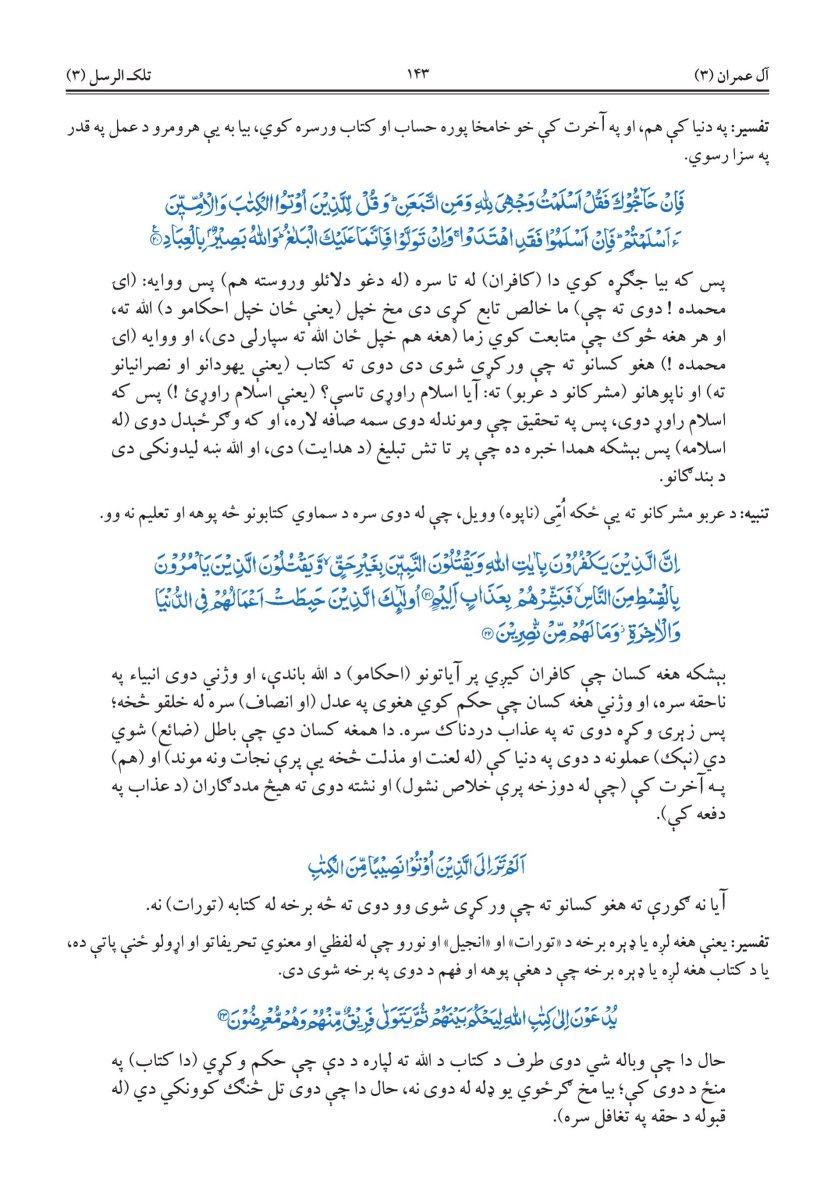 آل عمران (۳) ۱۴۳ تلک الرسل (۳)
تفسير: په دنيا کې هم، او په آخرت کې خو خامخا پوره حساب او کتاب ورسره کوي، بيا به يې هرومرو د عمل په قدر
په سزا رسوي.
فَاِنْ حَآجُّوْكَ فَقُلْ اَسْلَمْتُ وَجْهِىَ لِلّٰهِ وَمَنِ اتَّبَعَنِ ؕ وَ قُلْ لِّلَّذِيْنَ اُوْتُوا الْكِتٰبَ وَالْاُمِّيّٖنَ
ءَاَسْلَمْتُمْ ؕ فَاِنْ اَسْلَمُوْا فَقَدِ اهْتَدَوْا ۚ وَاِنْ تَوَلَّوْا فَاِنَّمَا عَلَيْكَ الْبَلٰغُ ؕ وَاللّٰهُ بَصِيْرٌۢ بِالْعِبَادِ ﴿۲۰﴾
پس که بيا جګړه کوي دا (کافران) له تا سره (له دغو دلائلو وروسته هم) پس ووايه: (اى
محمده ! دوى ته چې) ما خالص تابع کړى دى مخ خپل (يعنې ځان خپل احکامو د) الله ته،
او هر هغه څوک چې متابعت کوي زما (هغه هم خپل ځان الله ته سپارلى دى)، او ووايه (اى
محمده !) هغو کسانو ته چې ورکړى شوى دى دوى ته کتاب (يعنې يهودانو او نصرانيانو
ته) او ناپوهانو (مشرکانو د عربو) ته: آيا اسلام راوړى تاسې؟ (يعنې اسلام راوړئ !) پس که
اسلام راوړ دوى، پس په تحقيق چې وموندله دوى سمه صافه لاره، او که وګرځېدل دوى (له
اسلامه) پس بېشکه همدا خبره ده چې پر تا تش تبليغ (د هدايت) دى، او الله ښه ليدونکى دى
د بندګانو.
تنبيه: د عربو مشرکانو ته يې ځکه اُمِّى (ناپوه) وويل، چې له دوى سره د سماوي کتابونو څه پوهه او تعليم نه وو.
اِنَّ الَّذِيْنَ يَكْفُرُوْنَ بِاٰيٰتِ اللّٰهِ وَيَقْتُلُوْنَ النَّبِيّٖنَ بِغَيْرِ حَقٍّ ۙ وَّيَقْتُلُوْنَ الَّذِيْنَ يَاْمُرُوْنَ
بِالْقِسْطِ مِنَ النَّاسِ ۙ فَبَشِّرْهُمْ بِعَذَابٍ اَلِيْمٍ ﴿۲۱﴾ اُولٰٓئِكَ الَّذِيْنَ حَبِطَتْ اَعْمَالُهُمْ فِى الدُّنْيَا
وَالْاٰخِرَةِ ۚ وَمَا لَهُمْ مِّنْ نّٰصِرِيْنَ ﴿۲۲﴾
بېشکه هغه کسان چې کافران کيږي پر آياتونو (احکامو) د الله باندې، او وژني دوى انبياء په
ناحقه سره، او وژني هغه کسان چې حکم کوي هغوى په عدل (او انصاف) سره له خلقو څخه؛
پس زېرى وکړه دوى ته په عذاب دردناک سره. دا همغه کسان دي چې باطل (ضائع) شوي
دي (نېک) عملونه د دوى په دنيا کې (له لعنت او مذلت څخه يې پرې نجات ونه موند) او (هم)
په آخرت کې (چې له دوزخه پرې خلاص نشول) او نشته دوى ته هيڅ مددګاران (د عذاب په
دفعه کې).
اَلَمْ تَرَ اِلَى الَّذِيْنَ اُوْتُوْا نَصِيْبًا مِّنَ الْكِتٰبِ
آيا نه ګورې ته هغو کسانو ته چې ورکړى شوى وو دوى ته څه برخه له کتابه (تورات) نه.
تفسير: يعنې هغه لږه يا ډېره برخه د «تورات» او «انجيل» او نورو چې له لفظي او معنوي تحريفاتو او اړولو ځنې پاتې ده،
يا د کتاب هغه لږه يا ډېره برخه چې د هغې پوهه او فهم د دوى په برخه شوى دى.
يُدْعَوْنَ اِلٰى كِتٰبِ اللّٰهِ لِيَحْكُمَ بَيْنَهُمْ ثُمَّ يَتَوَلّٰى فَرِيْقٌ مِّنْهُمْ وَهُمْ مُّعْرِضُوْنَ ﴿۲۳﴾
حال دا چې وباله شي دوى طرف د کتاب د الله ته لپاره د دې چې حکم وکړي (دا کتاب) په
منځ د دوى کې؛ بيا مخ ګرځوي يو ډله له دوى نه، حال دا چې دوى تل څنګ کوونکي دي (له
قبوله د حقه په تغافل سره).